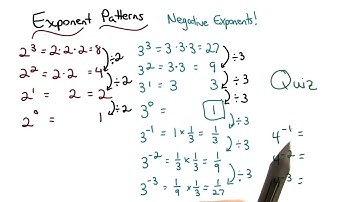 Exponent Patterns
Negative Exponents!
2³ = 2·2·2 = 8
÷2
2² = 2·2 = 4
÷2
2¹ = 2 = 2
÷2
2⁰ = 1
3³ = 3·3·3 = 27
÷3
3² = 3·3 = 9
÷3
3¹ = 3 3
÷3
3⁰ = 1
÷3
3⁻¹ = 1 × 1/3 = 1/3
÷3
3⁻² = 1/3 × 1/3 = 1/9
÷3
3⁻³ = 1/9 × 1/3 = 1/27
Quiz
4⁻¹ =
4⁻² =
4⁻³ =